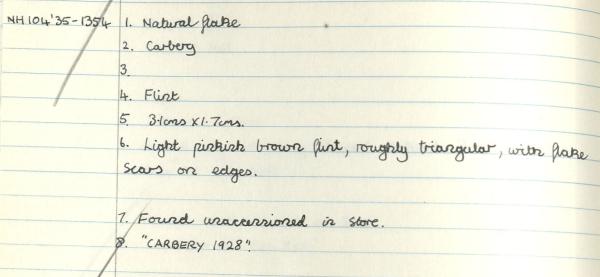 NH104'35-1354 1. Natural flake
2. Carberg
3.
4. Flint
5. 3.1cms x1.7cms.
6. Light pinkish brown flint, roughly triangular, with flake
scars on edges.
7. Found unaccessioned in store.
8. "CARBERY 1928".